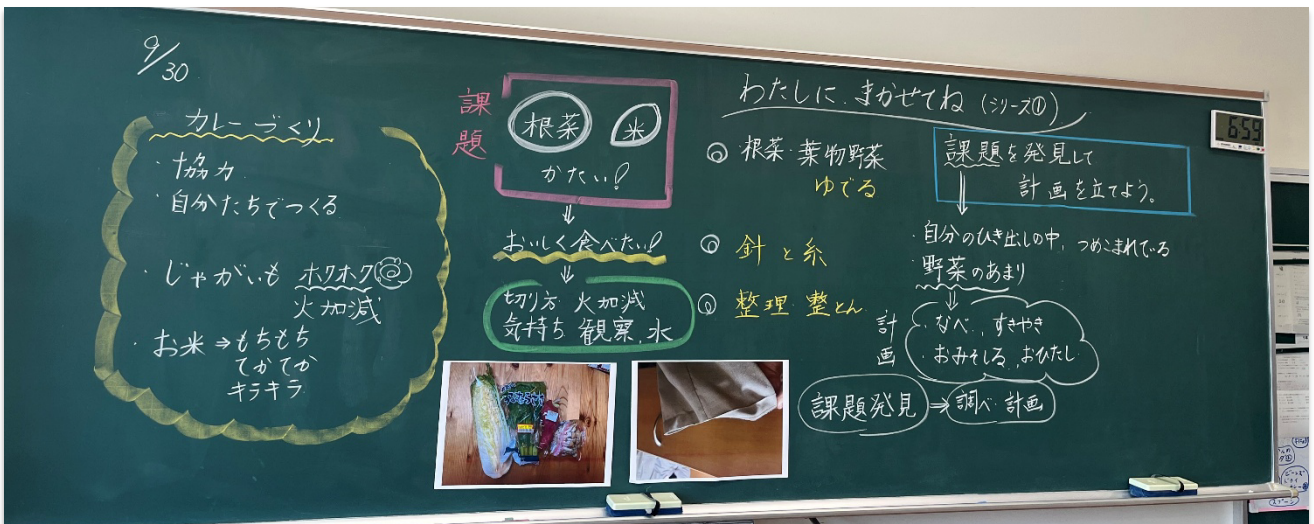 9/30
カレーづくり
・協力
・自分たちでつくる
・じゃがいも ホクホク
火加減
・お米⇒もちもち
てかてか
キラキラ
課題
根菜 米
かたい!
⇓
おいしく食べたい!
⇓
切り方 火加減
気持ち 観察、水
わたしに、まかせてね(シリーズ①)
◎・根菜・葉物野菜
ゆでる
◎ 針と糸
◎ 整理・整とん
課題を発見して
計画を立てよう。
⇓
・自分のひき出しの中、つめこまれている
・野菜のあまり
⇓
計画
・なべ、すきやき
・おみそしる、おひたし
課題発見⇒調べ・計画
6:59